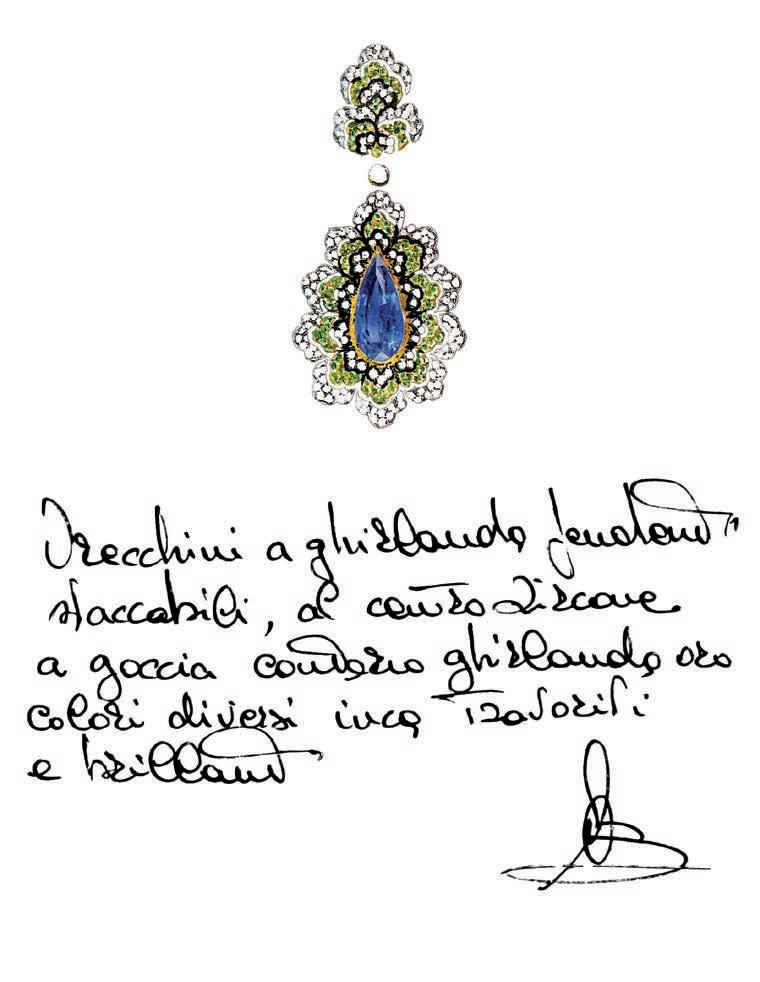 Orecchini a ghirlanda pendenti
staccabili, al centro Zircone
a goccia contorno ghirlanda oro
colori diversi inca Tzavoriti
e brillanti